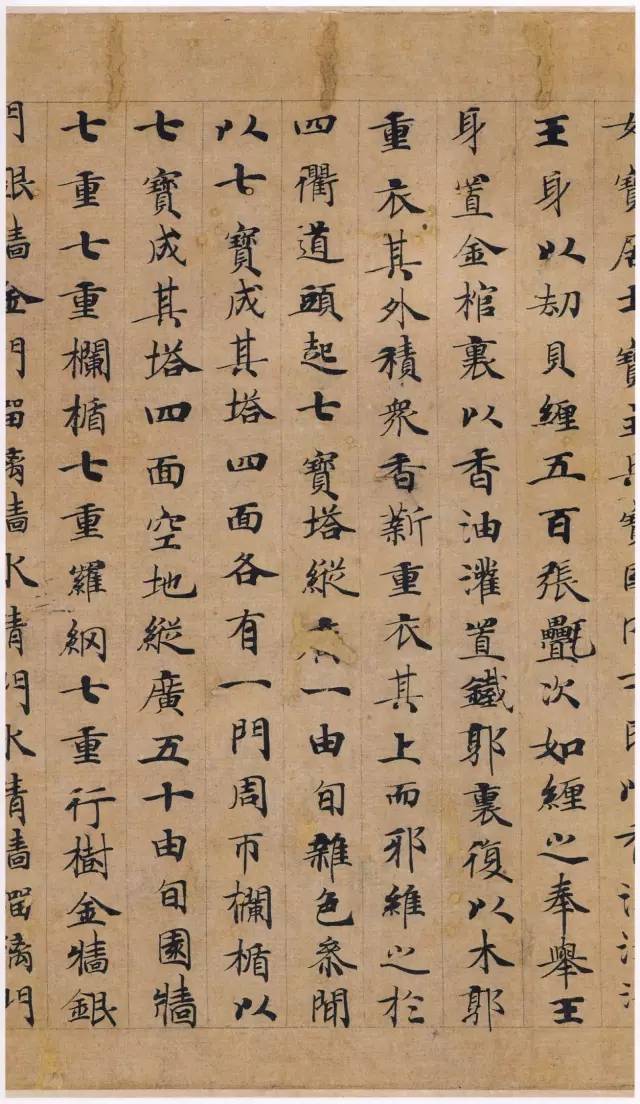 女寶居士寶主兵寶
王身以劫貝纏五百張氎次如纏之奉舉王
身置金棺裏以香油灌置鐵郭裏復以木郭
重衣其外積衆香薪重衣其上而邪維之於
四衢道頭起七寶塔縱一由旬雜色參間
以七寶成其塔四面各有一門周帀欄楯以
七寶成其塔四面空地縱廣五十由旬園牆
七重七重欄楯七重羅網七重行樹金牆銀
門銀墻金門璃墻水門水墻璃門